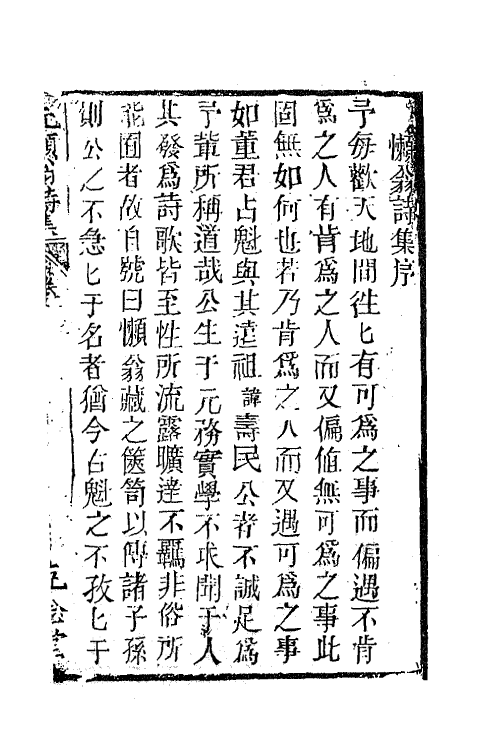 懶翁詩集序
予每歡天地間徃〻有可爲之事而偏遇不肯
爲之人有肯爲之人而又偏值無可爲之事此
固無如何也若乃肯爲之人而又遇可爲之事
如董君占魁與其遠祖諱壽民公者不誠足爲
予輩所稱道哉公生于元務實學不求聞于人
其發爲詩歌皆至性所流露曠達不羈非俗所
能囿者故自號曰懶翁藏之篋笥以傳諸子孫
則公之不急〻于名者猶今占魁之不孜〻于
元懶翁詩集